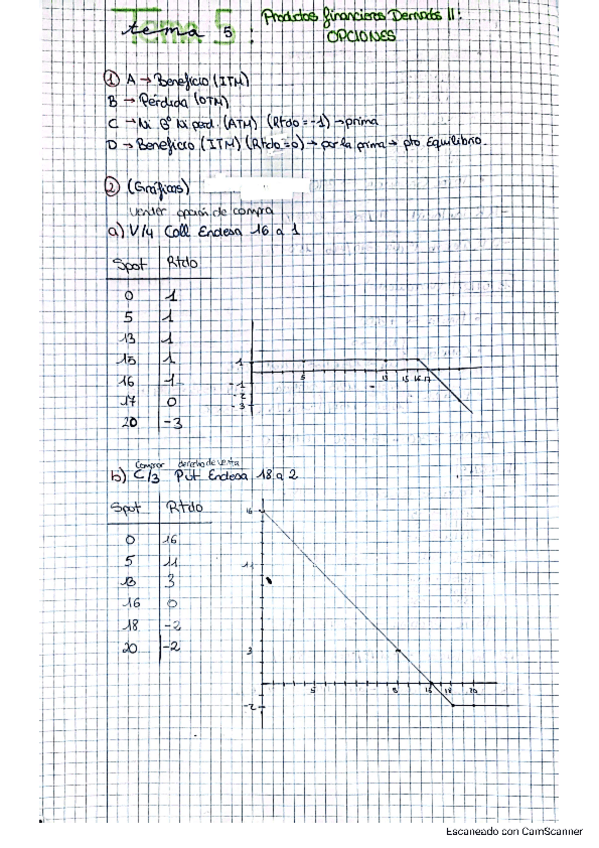 Tema 5:
tema 5
Productos financieros Derivados II:
OPCIONES
① A → Beneficio (ITM)
B → Pérdida (OTM)
C → Ni Bº Ni perd. (ATM) (Rtdo = -1) → prima
D → Beneficio (ITM) (Rtdo = 0) → por la prima → pto Equilibrio.
② (Gráficas)
vender opción de compra
a) V/4 Call Endesa 16 a 1
Spot Rtdo
0 1
5 1
13 1
15 1
16 1
17 0
20 -3
1
-1
-2
-3
5 13 15 16 17
Comprar derecho de venta
b) C/3 Put Endesa 18 a 2
Spot Rtdo
0 16
5 11
13 3
16 0
18 -2
20 -2
16
11
3
-2
5 16 18 20
Escaneado con CamScanner